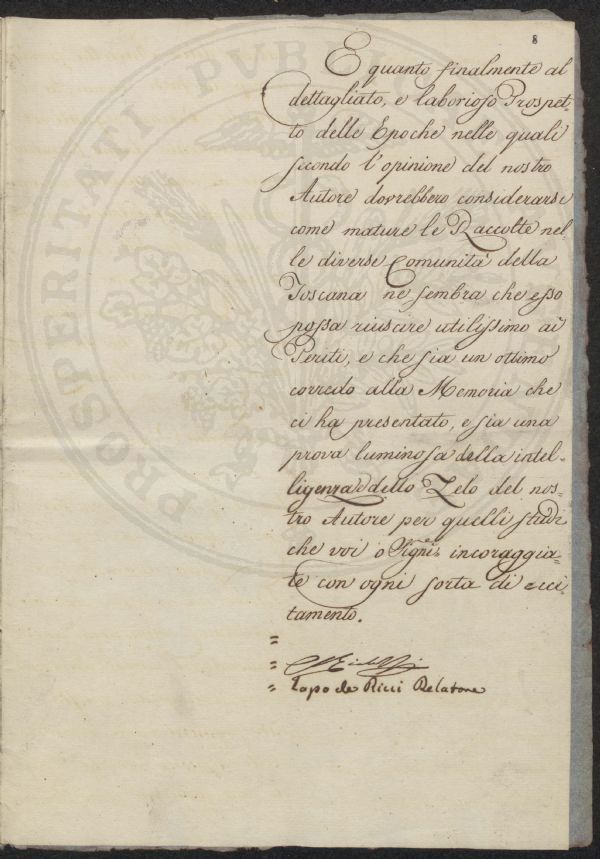 8
E quanto finalmente al
dettagliato, e laborioso Prospet-
to delle Epoche nelle quali
secondo l'opinione del nostro
Autore dovrebbero considerarsi
come mature le Raccolte nel-
le diverse Comunità della
Toscana ne sembra che esso
possa riuscire utilissimo ai
Periti, e che sia un ottimo
corredo alla Memoria che
ci ha presentato, e sia una
prova luminosa della intel-
ligenza e dello Zelo del nos-
tro Autore per quelli studi
che voi o Sigri. incoraggia-
te con ogni sorta di ecci-
tamento.
=
=
= Lapo de Ricci Relatore
PROSPERITATI PUBLI